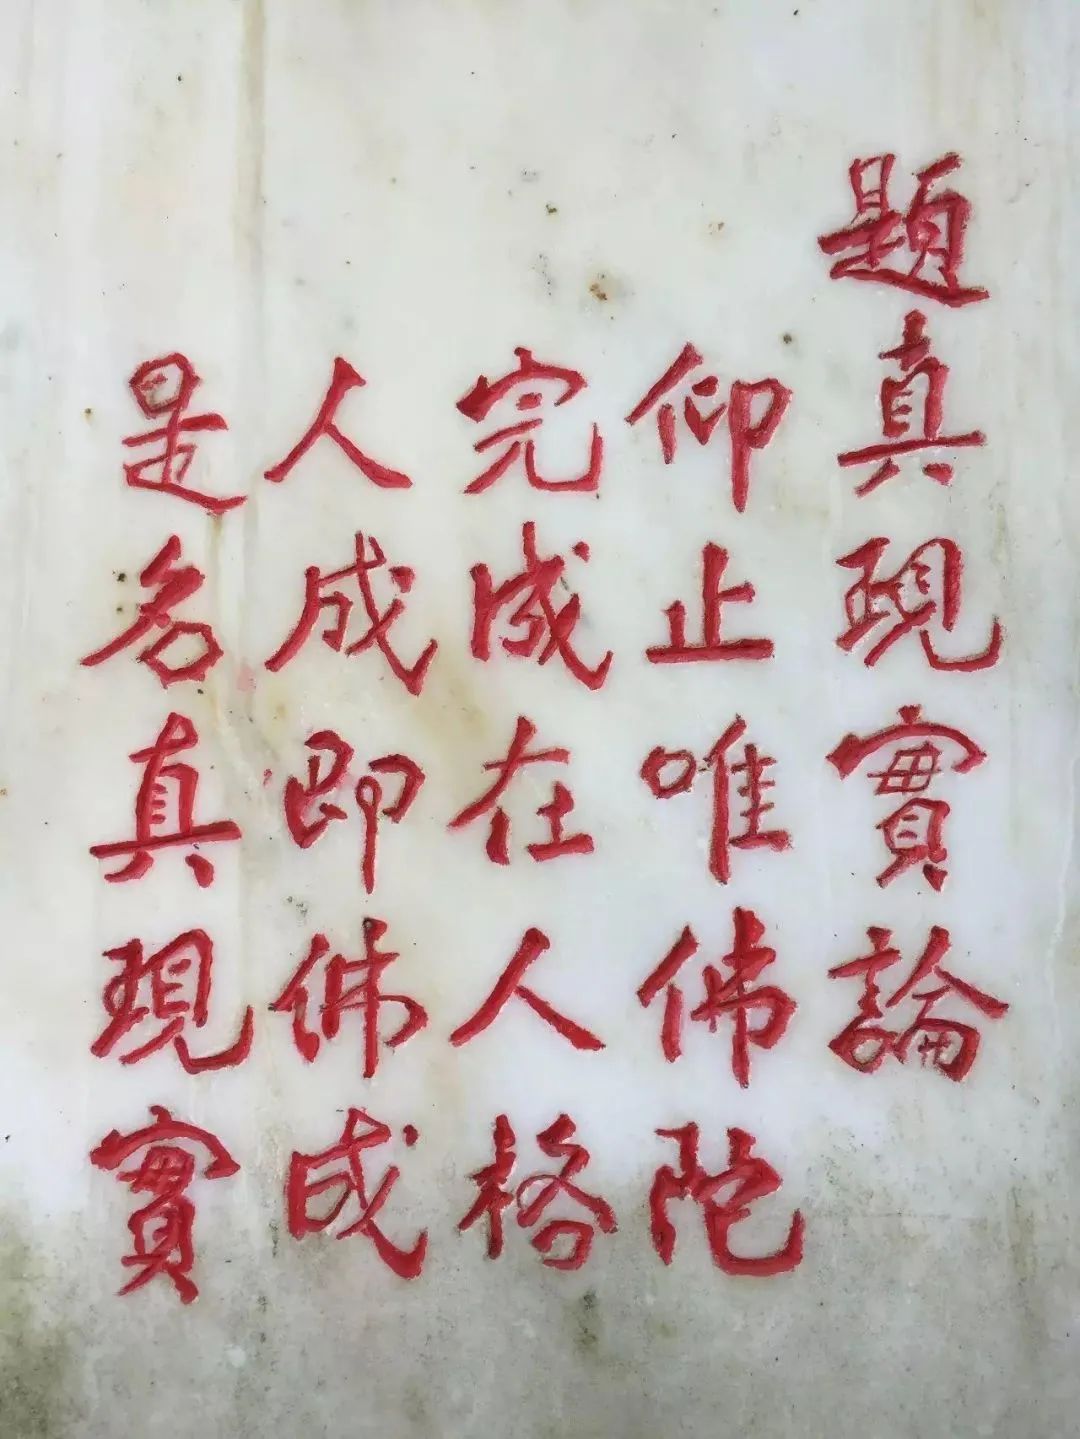 題真現實論
仰止唯佛陀
完成在人格
人成即佛成
是名真現實